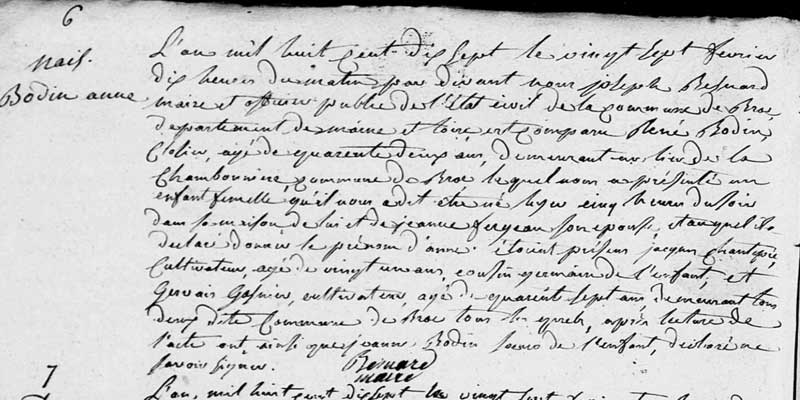 6
Nais.
Bodin anne
L'an mil huit cent dix sept le vingt sept fevrier
dix heures du matin par divant nous joseph Besnard
maire et officier public de l'état civil de la commune de Broc
departement de maine et loire, est comparu René Bodin,
Closier, agé de quarente deux ans, demeurant au lieu de la
Chambonniere, commune de Broc lequel nous a présenté un
enfant femelle, qu'il nous a dit etre né hyer cinq heures du soir
dans sa maison de lui et de jeanne fergeau son epouse, et auquel il a
declaré donner le prénom d'anne. étoient présens jacques
Cultivateur, agé de vingt un ans, cousin germain de l'enfant, et
Gervais Gasnier, cultivateur, agé de quarent sept ans demeurant tous
deux dite Commune de Broc tous les quels, après lecture de
l'acte ont, ainsi que jeanne Bodin de l'enfant, declaré ne
savoir signer.
Besnard
maire
7
L'an mil huit cent dix sept le vingt sept